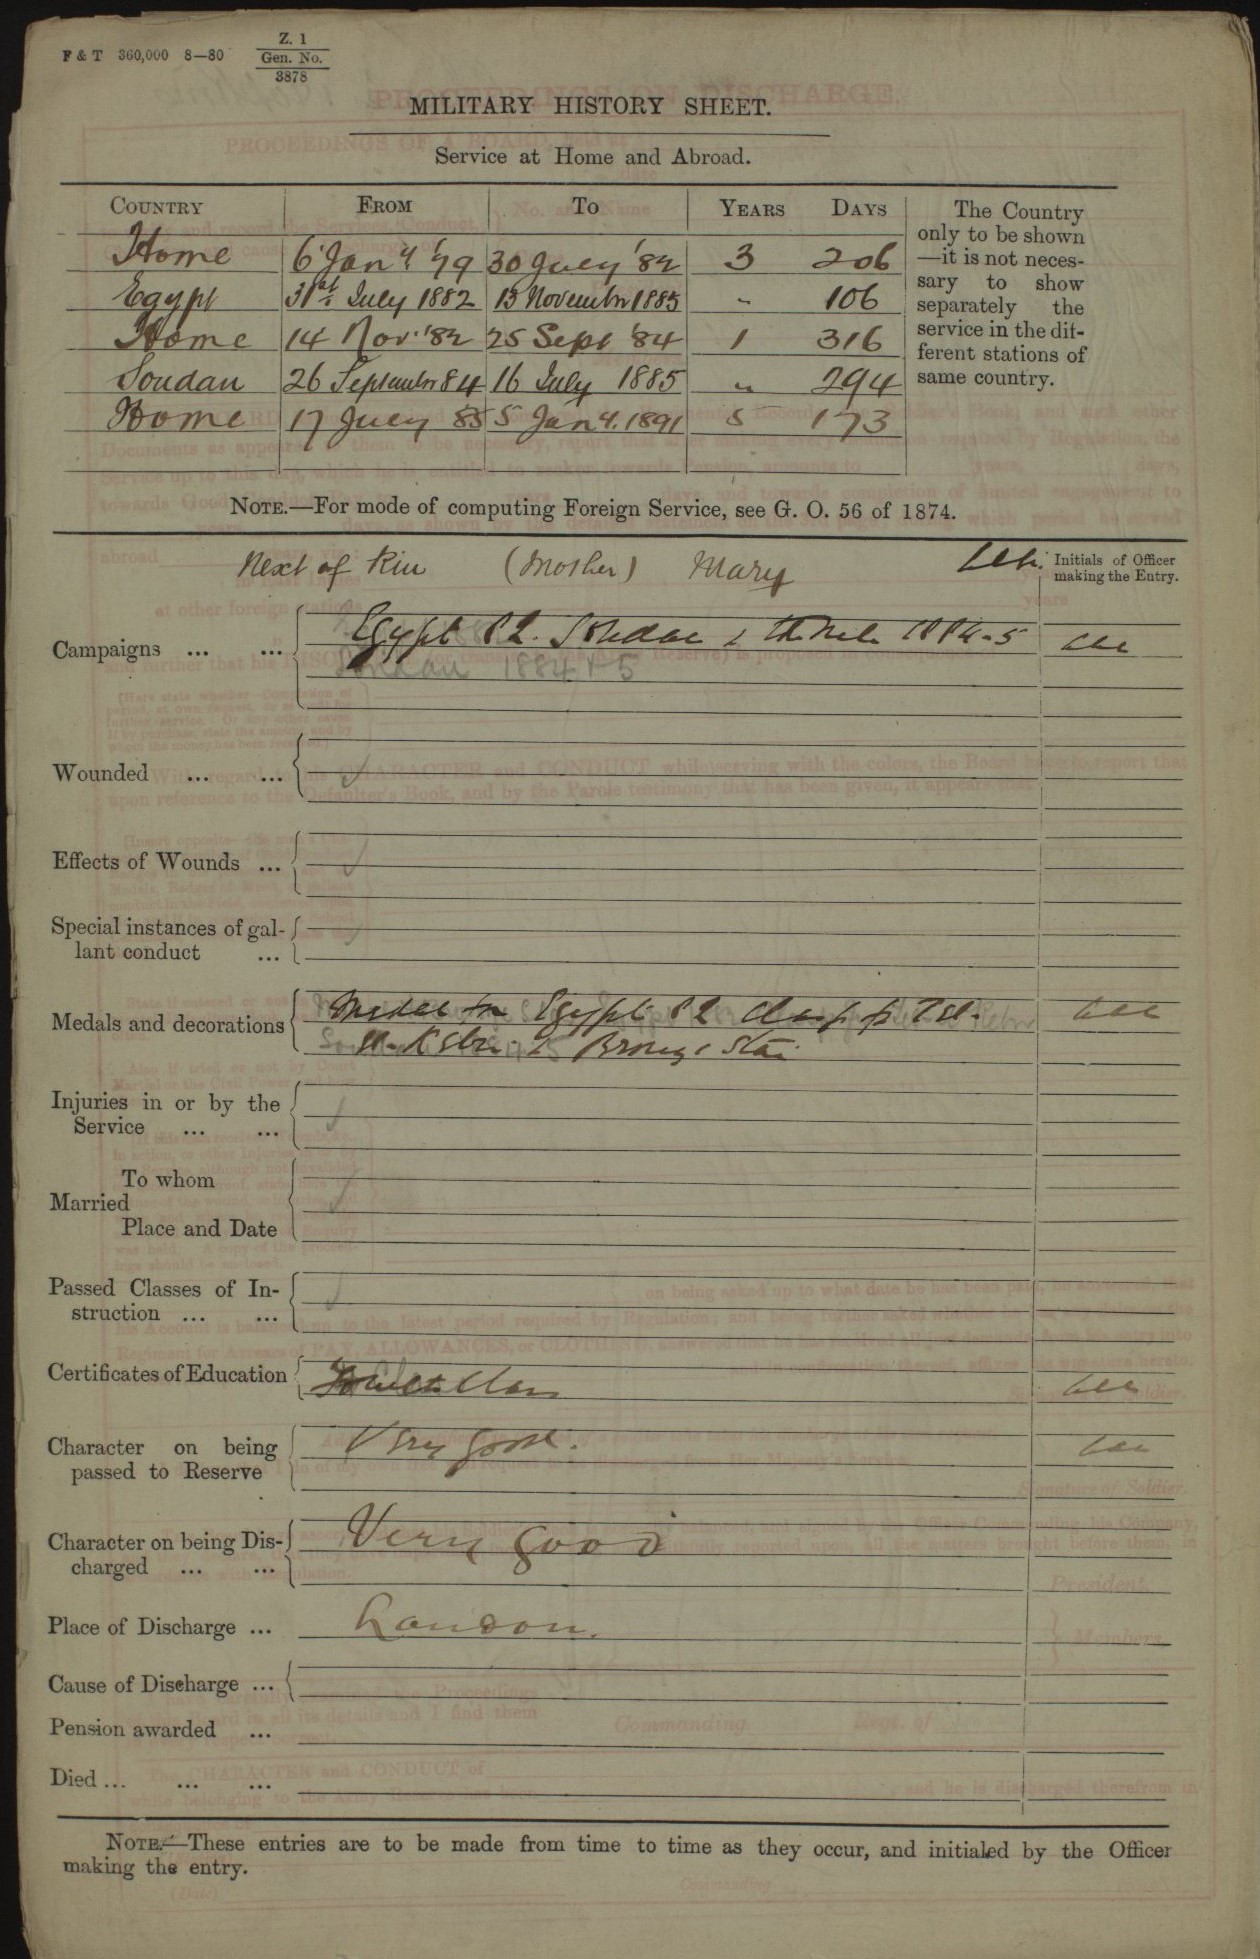 F & T 360,000 8—80
Z. 1
Gen. No.
3878
MILITARY HISTORY SHEET.
Service at Home and Abroad.
COUNTRY FROM TO YEARS DAYS
Home 6 Jany '79 30 July '82 3 206
Egypt 31st July 1882 13 November 1885 " 106
Home 14 Nov. '82 25 Sept '84 1 316
Soudan 26 September 84 16 July 1885 " 294
Home 17 July 85 5 Jany. 1891 5 173
The Country
only to be shown
—it is not neces-
sary to show
separately the
service in the dif-
ferent stations of
same country.
NOTE.—For mode of computing Foreign Service, see G. O. 56 of 1874.
Next of Kin (Mother) Mary
Initials of Officer
making the Entry.
Campaigns ... ... Egypt 82. Soudan & the Nile 1884-5
Soudan 1884+5
Wounded ... ...
Effects of Wounds ...
Special instances of gal-
lant conduct ...
Medals and decorations Medal for Egypt 82 Clasp for
Bronze Star
Injuries in or by the
Service ... ...
To whom
Married
Place and Date
Passed Classes of In-
struction ... ...
Certificates of Education Class
Character on being Very good.
passed to Reserve
Character on being Dis- Very good
charged ... ...
Place of Discharge ... London.
Cause of Discharge ...
Pension awarded ...
Died ... ... ...
NOTE.—These entries are to be made from time to time as they occur, and initialed by the Officer
making the entry.